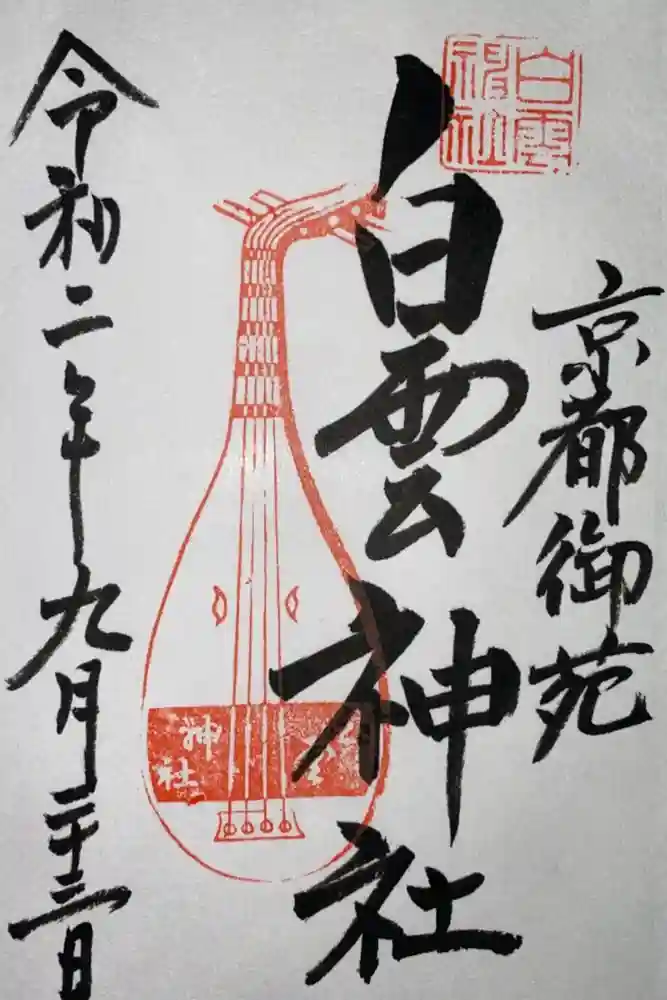 京都御苑
白雲
神社
白雲神社
神社
令和二年九月二十三日